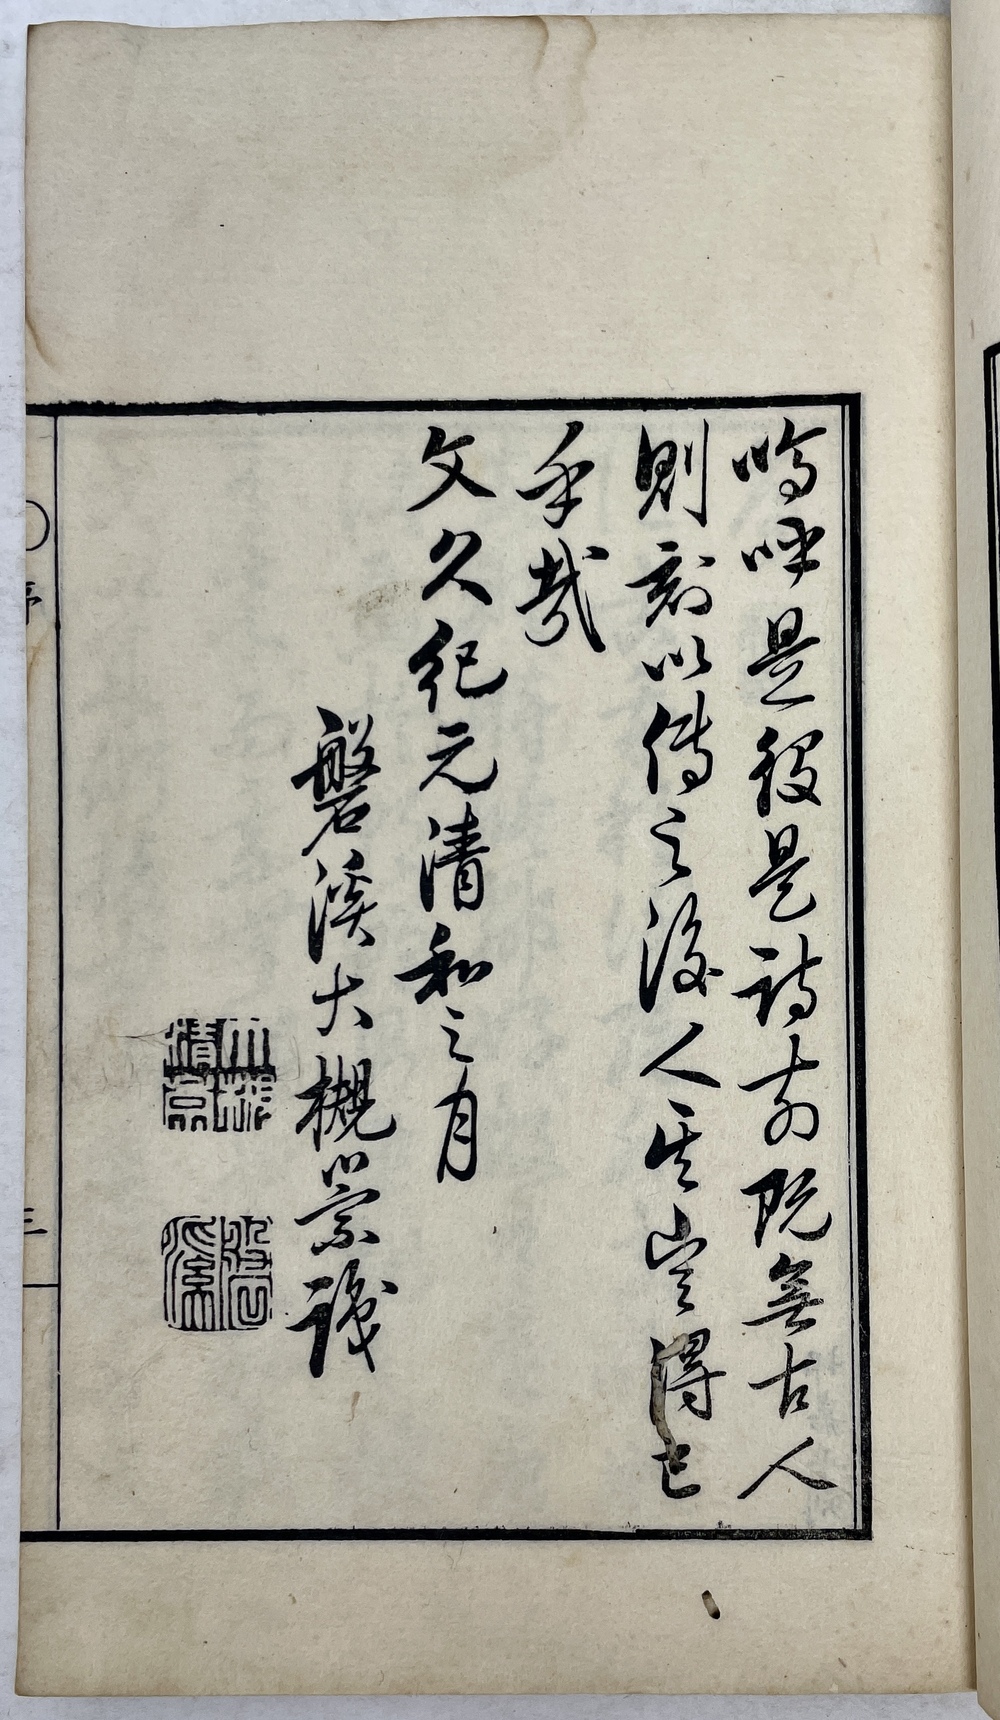 嗚呼是役是詩前既無古人
則刻以傳之後人其豈得已
乎哉
文久紀元清和之月
磐溪大槻崇識
大槻清崇
磐溪
序
三